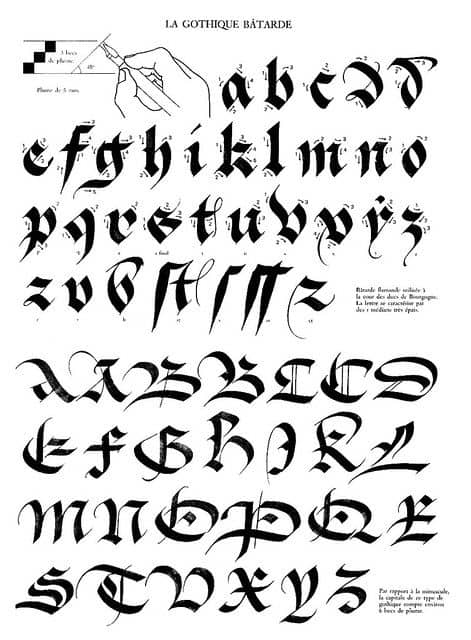 LA GOTHIQUE BÂTARDE
5 becs
de plume.
45°
Plume de 5 mm.
a b c d d
e f g h i k l m n o
p q r e s t u v v ÿ z
s final
z v v b st ſ ſſ z
Bâtarde flamande utilisée à
la cour des ducs de Bourgogne.
La lettre se caractérise par
des s médians très épais.
A A B B C C D
E F G H I K L
M N O P Q E
S T V X Y Z
Par rapport à la minuscule,
la capitale de ce type de
gothique compte environ
6 becs de plume.